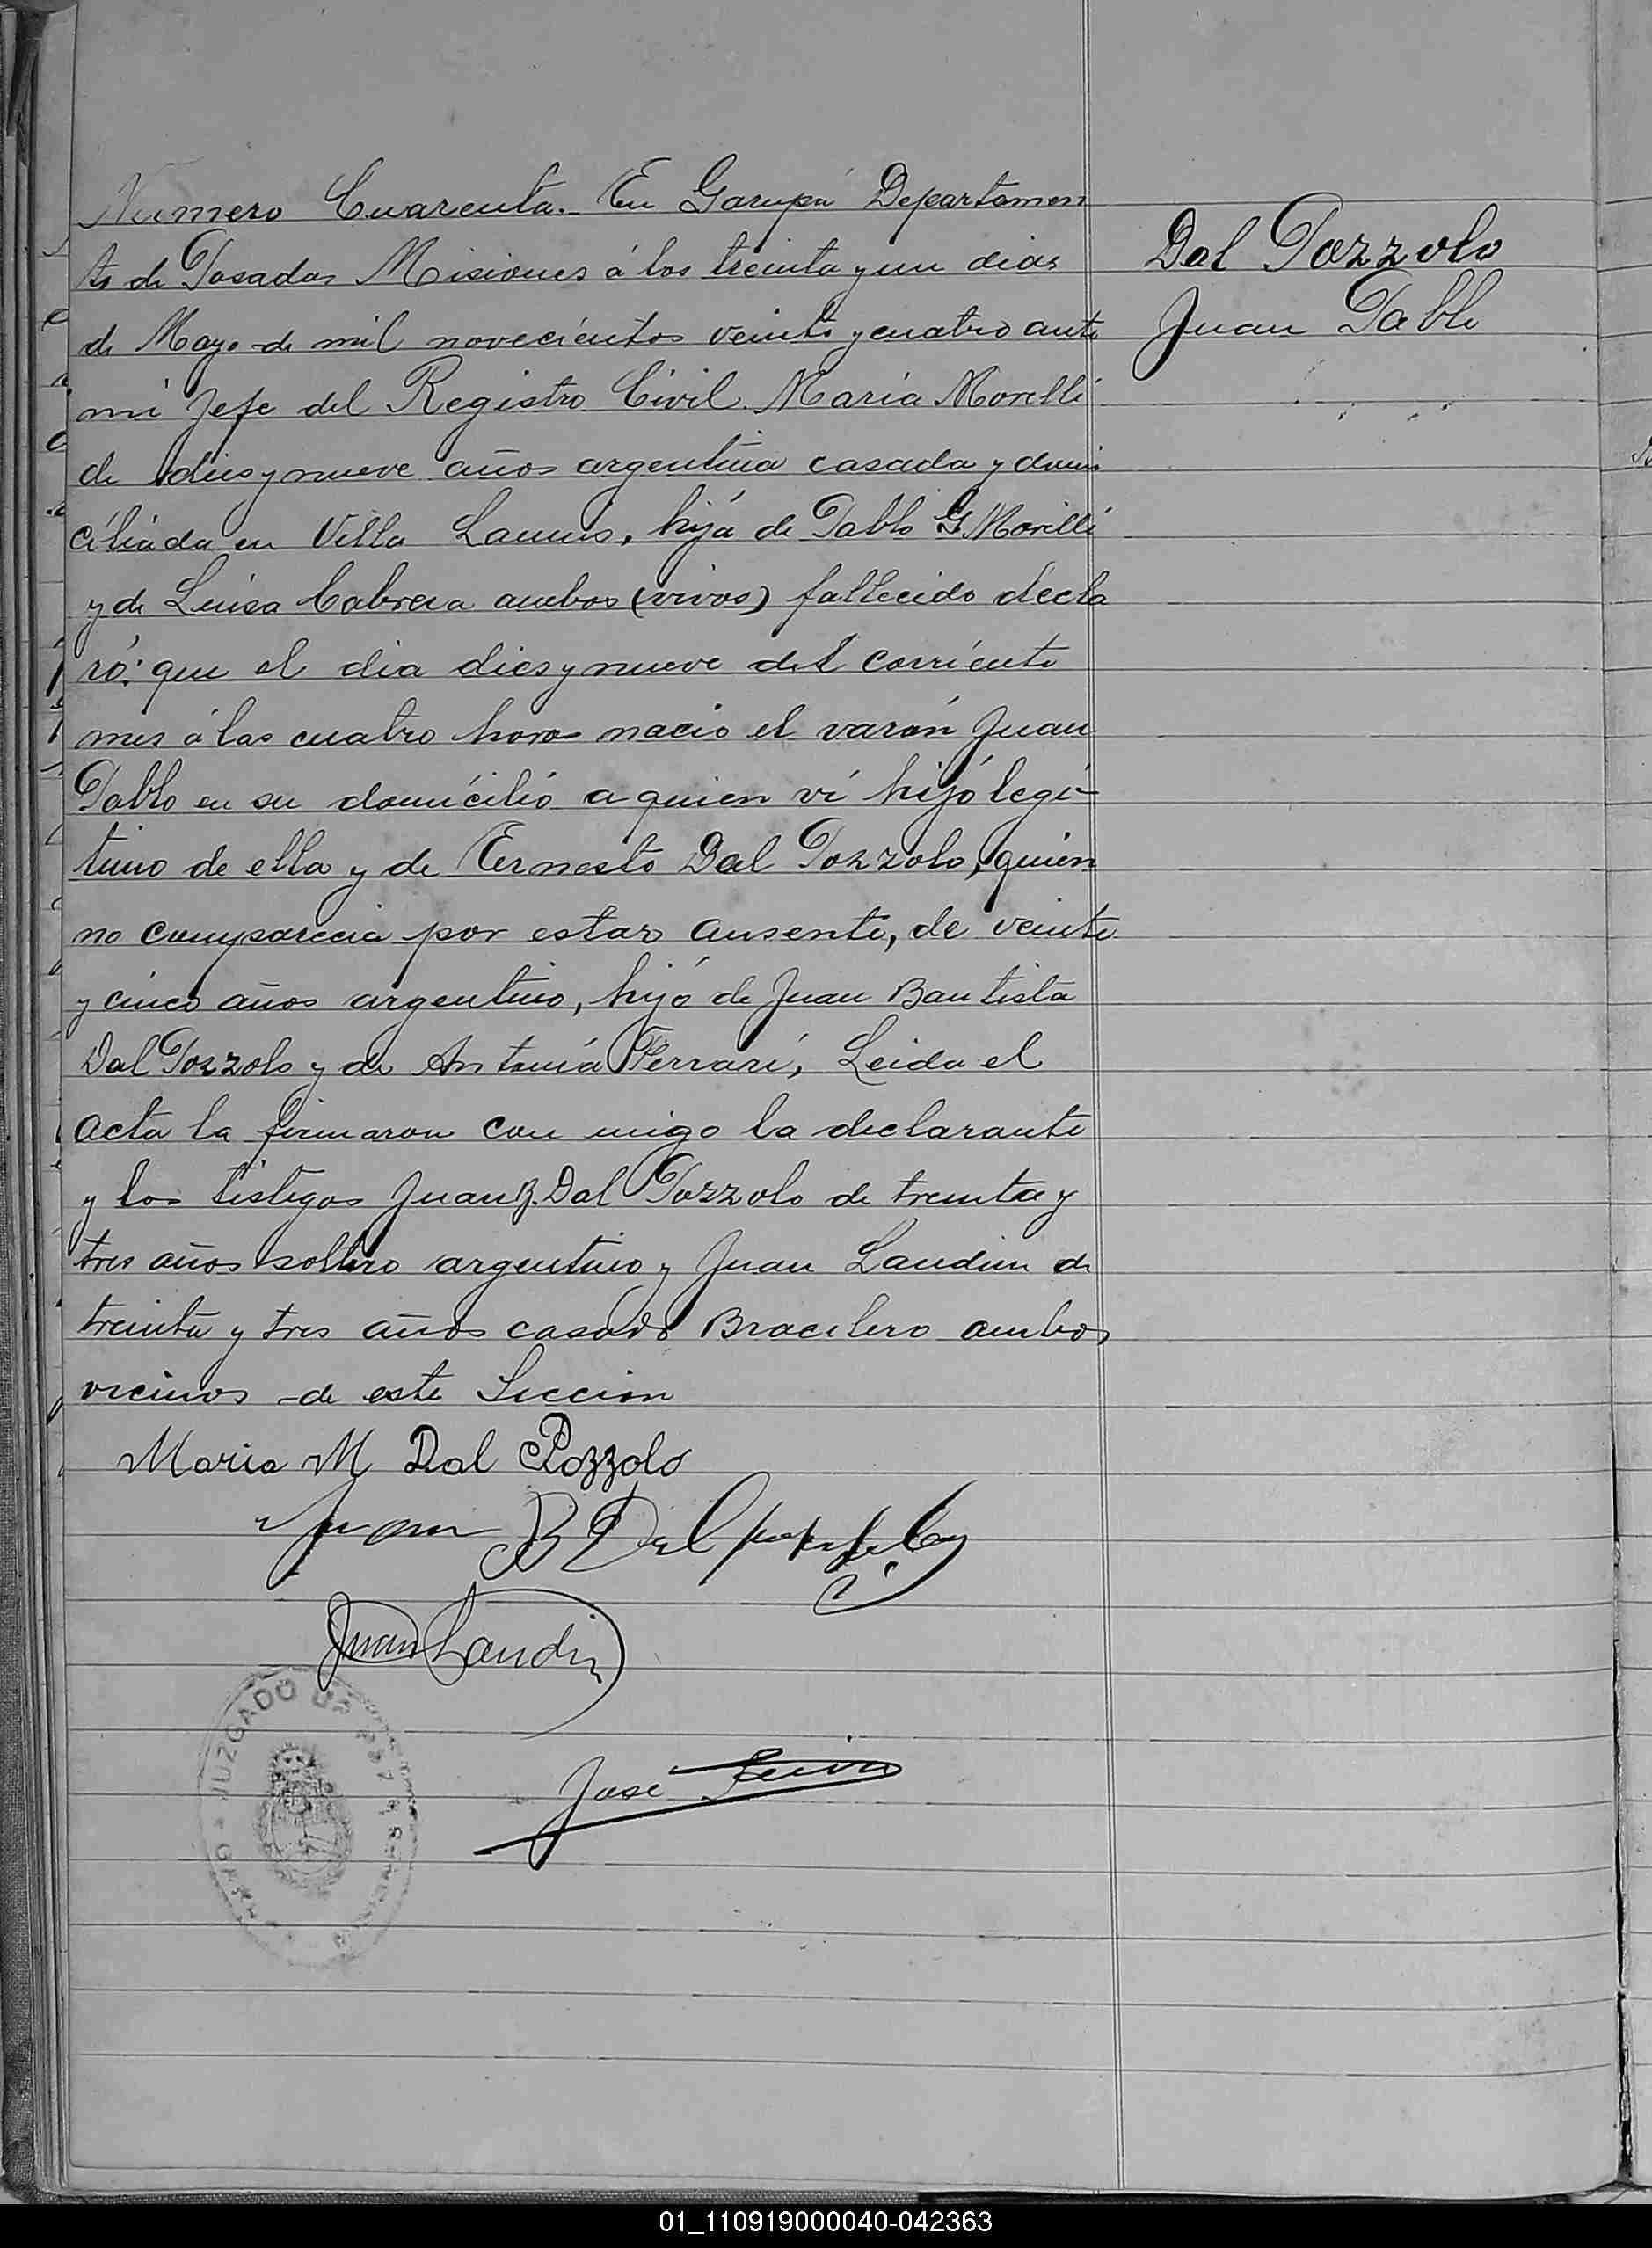 Numero Cuarenta. En Garupá Departamen
to de Posadas Misiones á los treinta y un dias
de Mayo de mil novecientos veinte y cuatro ante
mi Jefe del Registro Civil Maria Morelli
de dies y nueve años argentina casada y domi
ciliada en Villa Lanus, hija de Pablo G. Morelli
y de Luisa Cabrera ambos (vivos) fallecido decla
ró: que el dia dies y nueve del corriente
mes á las cuatro horas nacio el varón Juan
Pablo en su domicilio a quien ví hijo legi-
timo de ella y de Ernesto Dal Pozzolo, quien
no comparecia por estar ausente, de veinte
y cinco años argentino, hijo de Juan Bautista
Dal Pozzolo y de Antonia Ferrari, Leida el
acta la firmaron con migo la declarante
y los testigos Juan B. Dal Pozzolo de treinta y
tres años soltero argentino y Juan Landin de
treinta y tres años casado Bracilero ambos
vecinos de este Seccion
Dal Pozzolo
Juan Pablo
Maria M Dal Pozzolo
Juan B Dal pozzolo
Juan Landin
José Leiva
JUZGADO DE PAZ
01_110919000040-042363